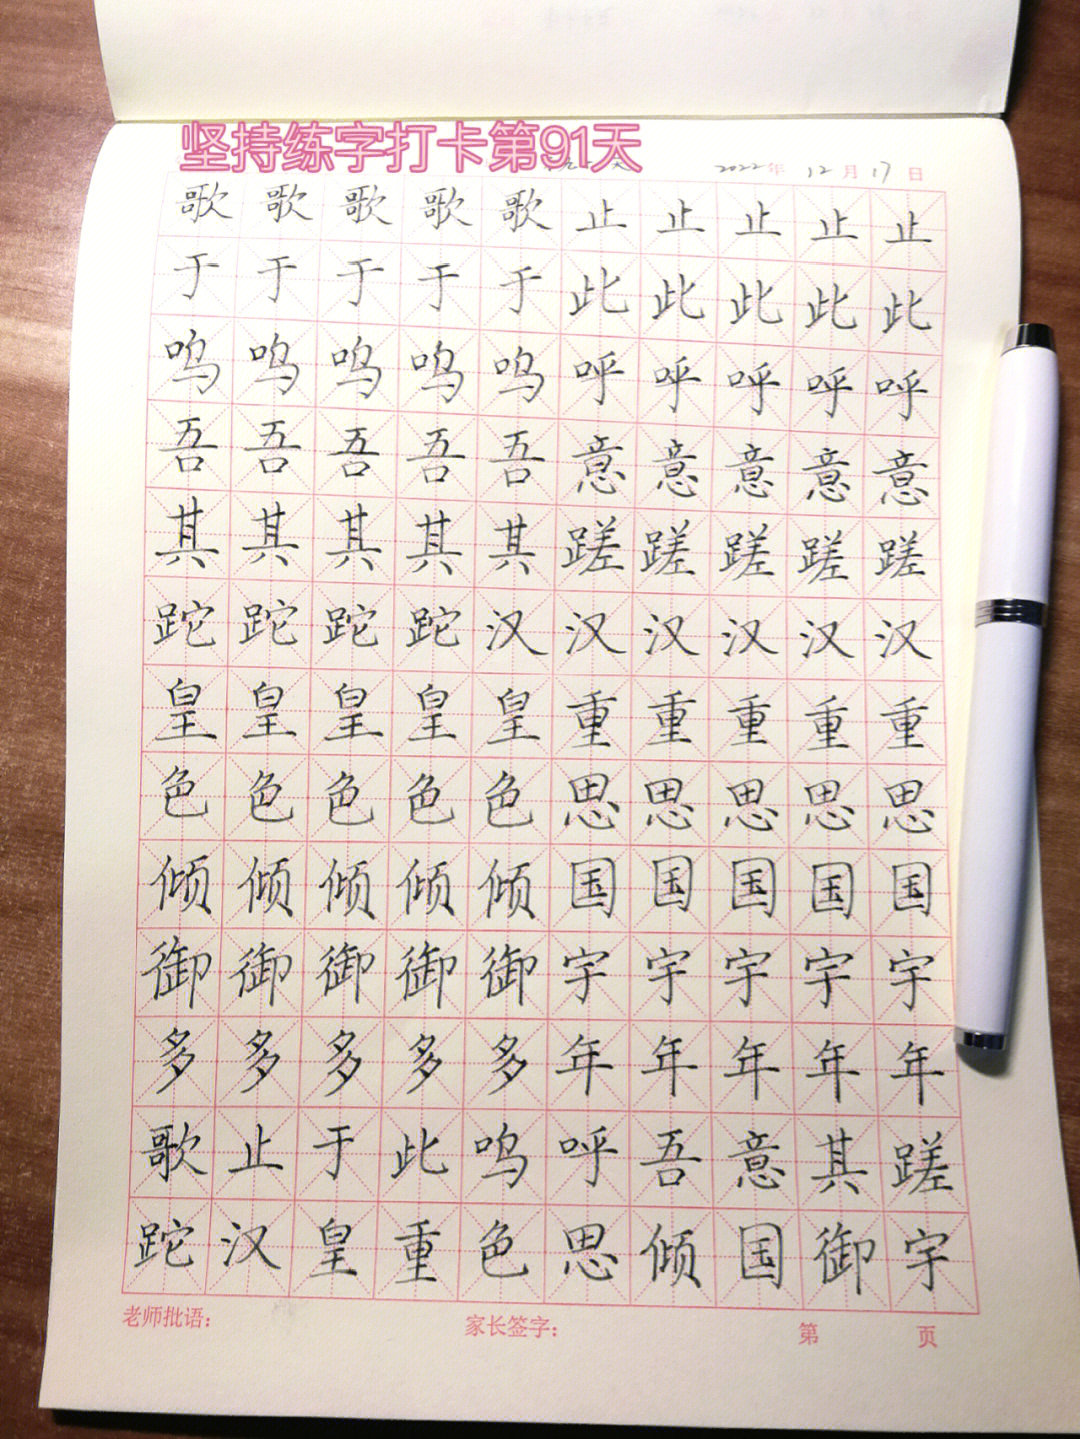 坚持练字打卡第91天
2022年 12月 17日
歌歌歌歌歌止止止止止
于于于于于此此此此此
呜呜呜呜呜呼呼呼呼呼
吾吾吾吾吾意意意意意
其其其其其蹉蹉蹉蹉蹉
跎跎跎跎汉汉汉汉汉汉
皇皇皇皇皇重重重重重
色色色色色思思思思思
倾倾倾倾倾国国国国国
御御御御御宇宇宇宇宇
多多多多多年年年年年
歌止于此呜呼吾意其蹉
跎汉皇重色思倾国御宇
老师批语: 家长签字: 第 页